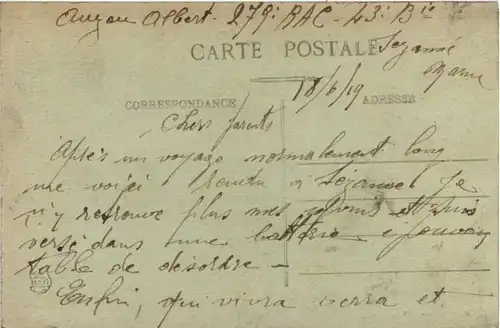 Auzou Albert - 279i RAC - 43i Bie
CARTE POSTALE
Sezanne
Marne
18/6/19
CORRESPONDANCE
ADRESSE
Chers parents
Après un voyage normalement long
me voici rendu à Sezanne Je
n'y retrouve plus mes et suis
versé dans une batterie
table de désordre -
Enfin, qui vivra verra et